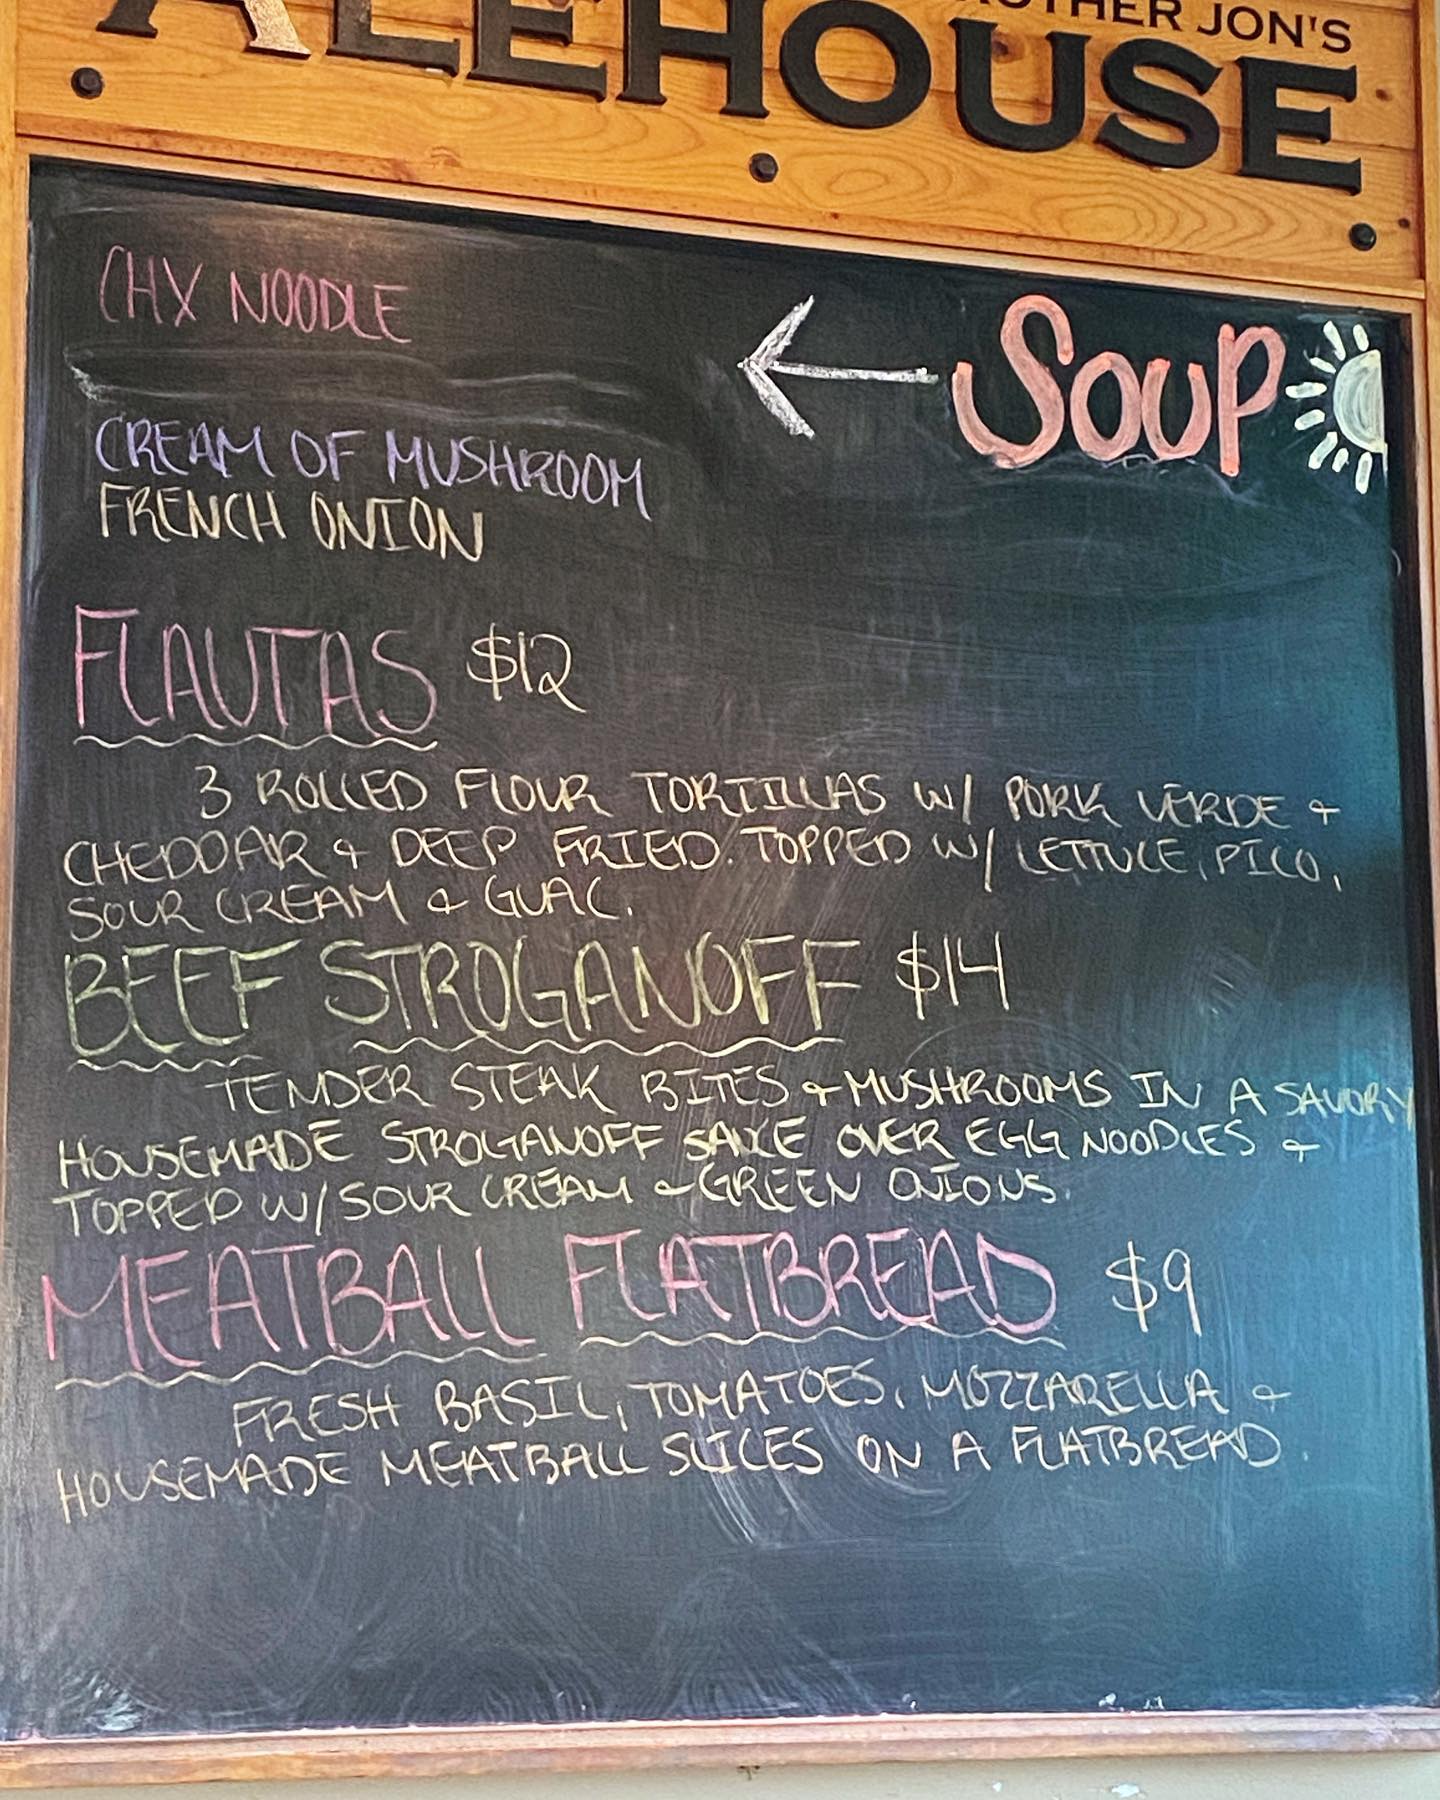 JON'S
ALEHOUSE
CHX NOODLE
SOUP
CREAM OF MUSHROOM
FRENCH ONION
FLAUTAS $12
3 ROLLED FLOUR TORTILLAS W/ PORK VERDE &
CHEDDAR & DEEP FRIED. TOPPED W/ LETTUCE, PICO,
SOUR CREAM & GUAC.
BEEF STROGANOFF $14
TENDER STEAK BITES & MUSHROOMS IN A SAVORY
HOUSEMADE STROGANOFF SAUCE OVER EGG NOODLES &
TOPPED W/ SOUR CREAM & GREEN ONIONS.
MEATBALL FLATBREAD $9
FRESH BASIL, TOMATOES, MOZZARELLA &
HOUSEMADE MEATBALL SLICES ON A FLATBREAD.